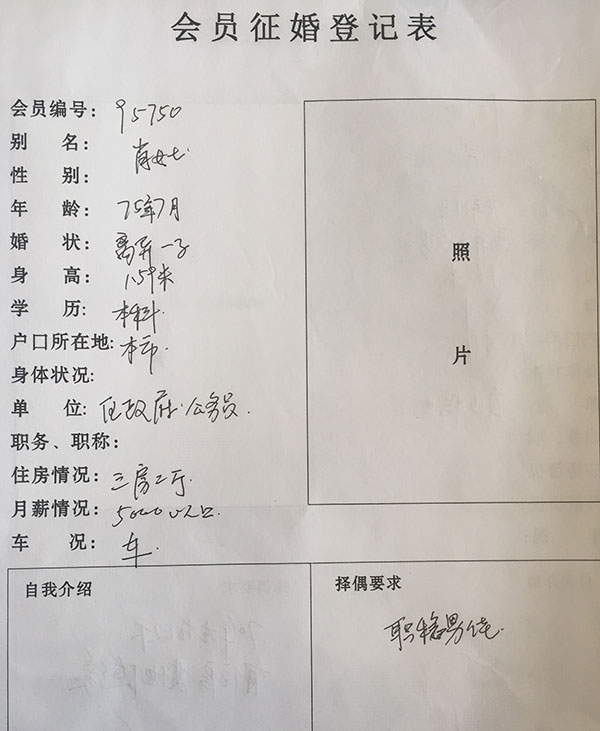 会员征婚登记表
会员编号: 95750
别 名: 肖女士
性 别:
年 龄: 75年7月
婚 状: 离异一子
身 高: 1.59米
学 历: 本科
户口所在地: 本市.
身体状况:
单 位: 任政府公务员.
职务、职称:
住房情况: 三房二厅
月薪情况: 5000以上
车 况: 车.
照
片
自我介绍
择偶要求